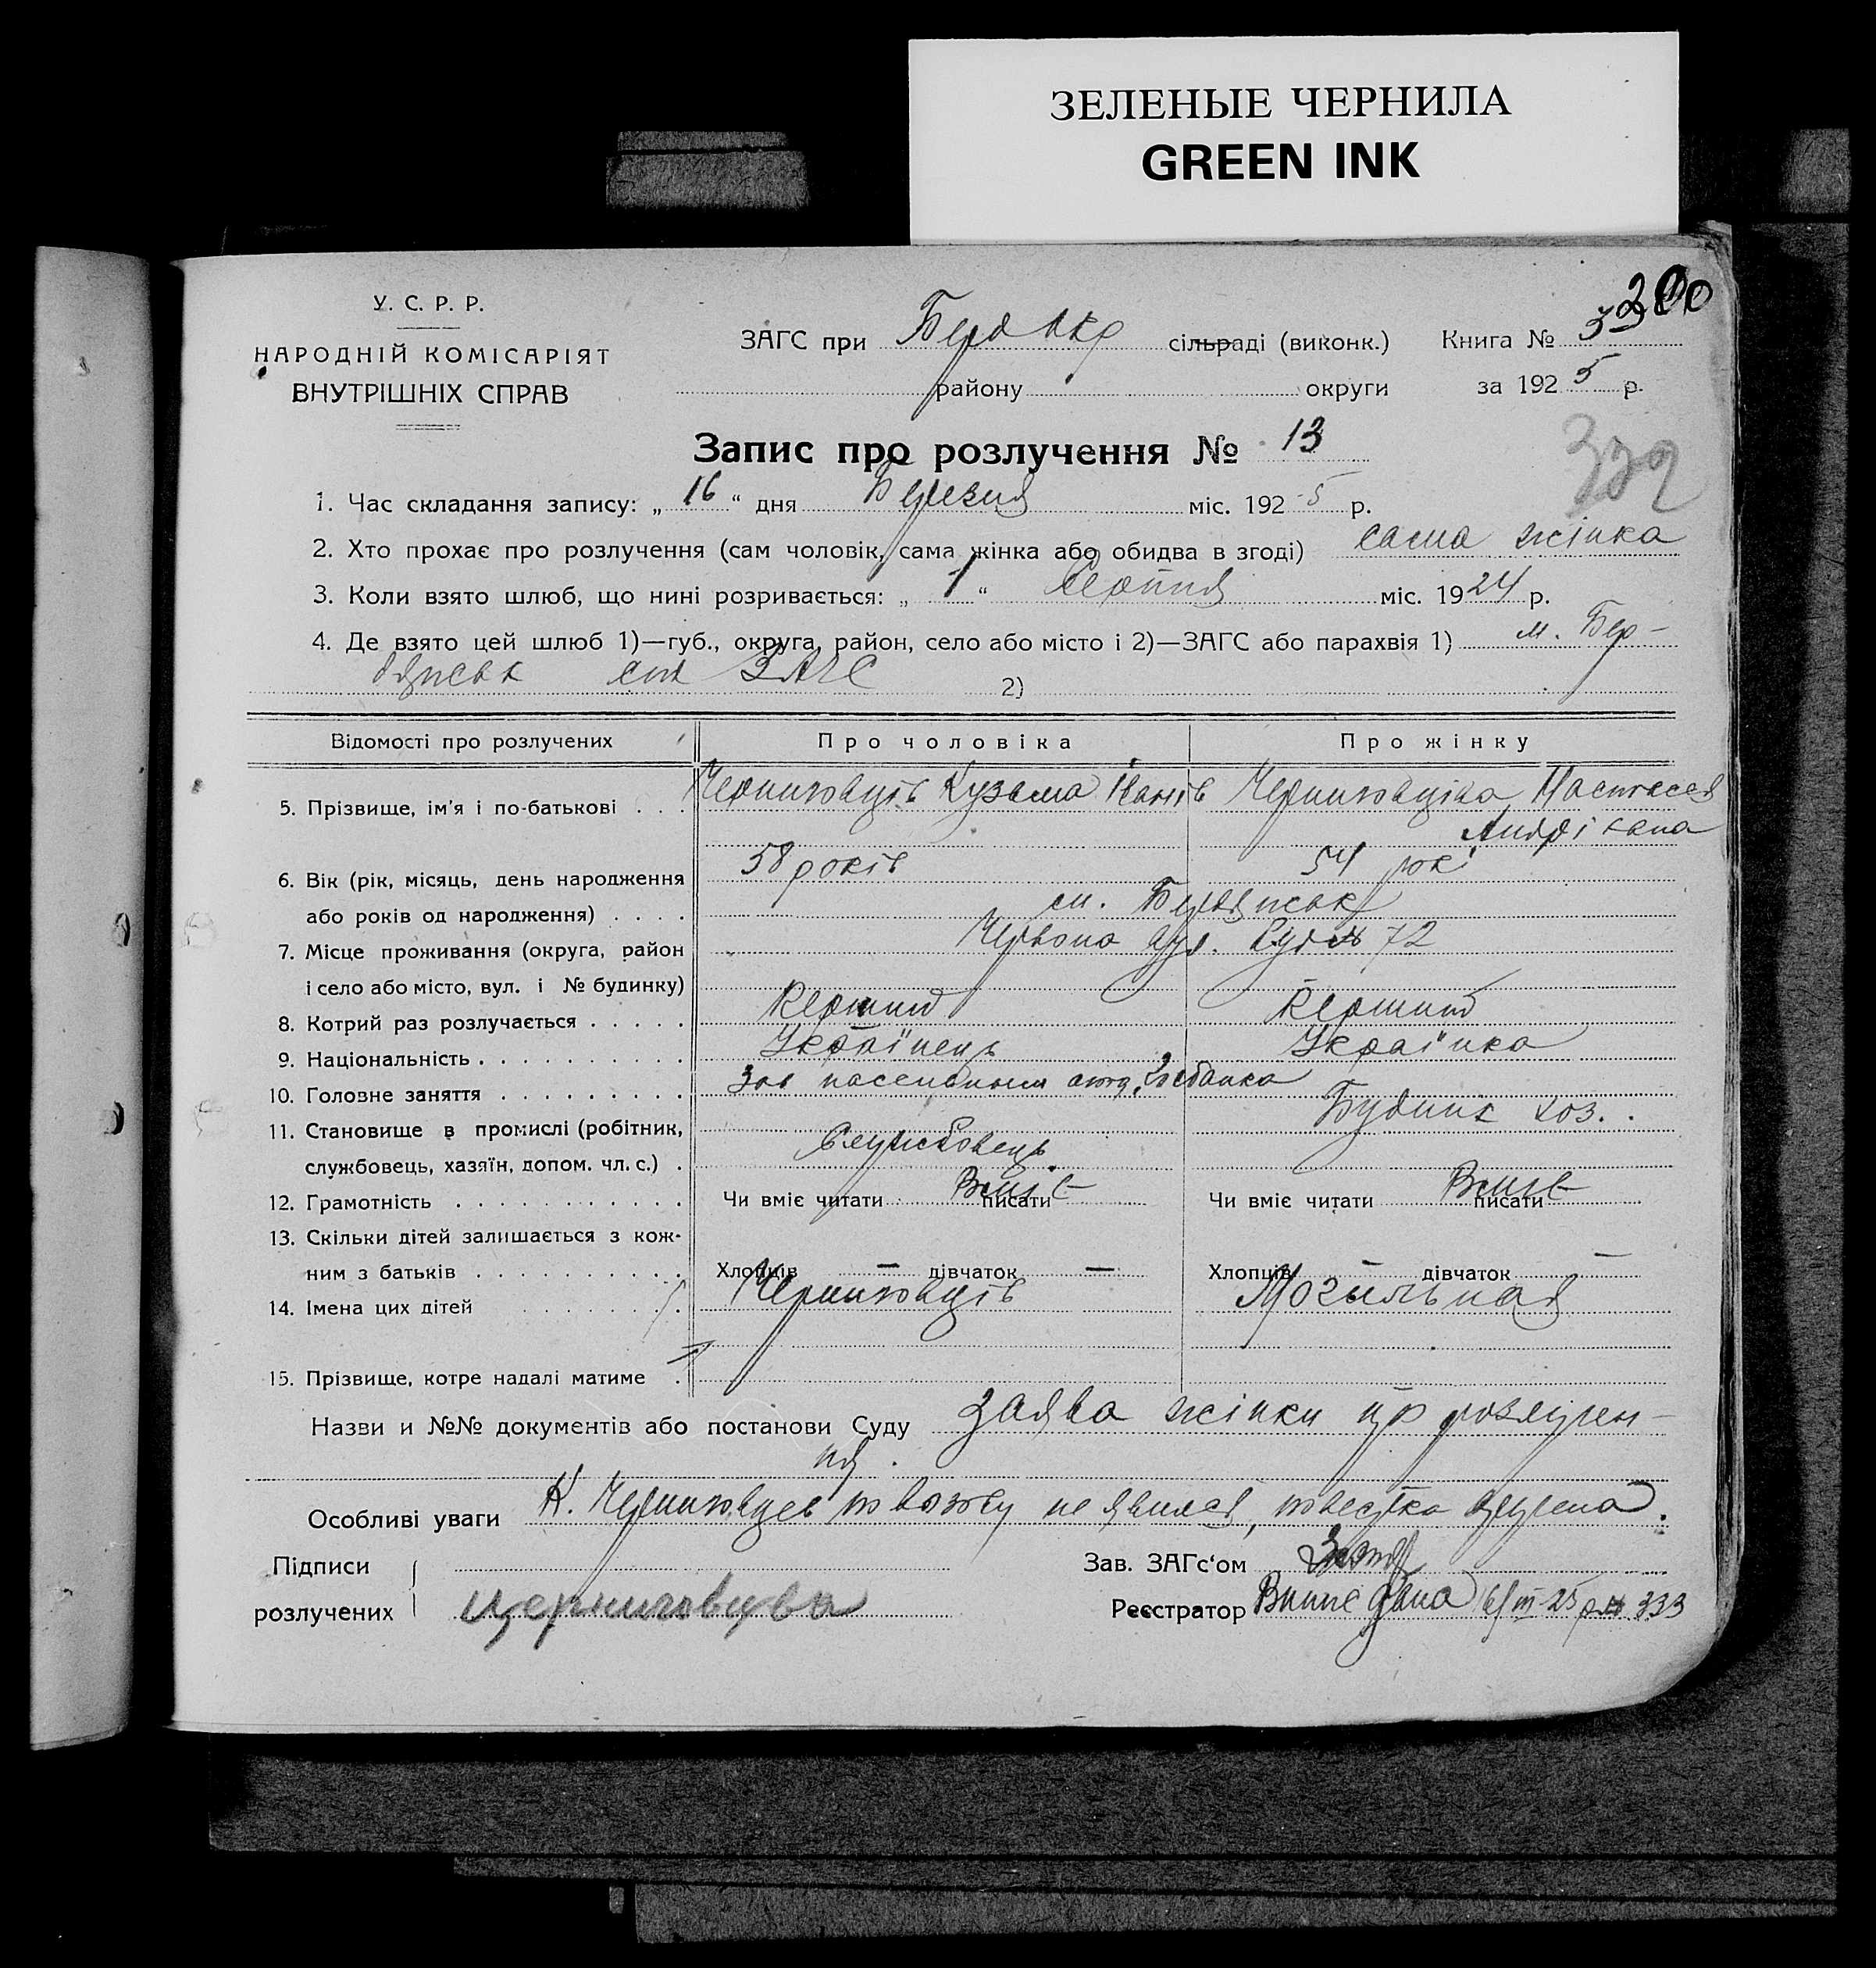 ЗЕЛЕНЫЕ ЧЕРНИЛА
GREEN INK
200
У. С. Р. Р.
НАРОДНІЙ КОМІСАРІЯТ
ВНУТРІШНІХ СПРАВ
ЗАГС при Берд окр сільраді (виконк.) Книга № 3
району округи за 1925 р.
Запис про розлучення № 13
332
1. Час складання запису: „16“ дня Березня міс. 1925 р.
2. Хто прохає про розлучення (сам чоловік, сама жінка або обидва в згоді) сама жінка
3. Коли взято шлюб, що нині розривається: „1“ Серпня міс. 1924 р.
4. Де взято цей шлюб 1)—губ., округа, район, село або місто і 2)—ЗАГС або парахвія 1) м. Бер-
дянськ ЗАГС 2)
Відомості про розлучених Про чоловіка Про жінку
5. Прізвище, ім'я і по-батькові . . . Черниговців Кузьма Іванів Черниговціва Настасея
Андріівна
6. Вік (рік, місяць, день народження 58 років 54 рокі
або років од народження) . . . . м. Бердянськ
7. Місце проживання (округа, район Червона вул. Буд № 72
і село або місто, вул. і № будинку)
8. Котрий раз розлучається . . . . . Перший Перший
9. Національність . . . . . . . . . . Українець Українка
10. Головне заняття . . . . . . . . . Зав пассивным отд. Госбанка Будинк хоз.
11. Становище в промислі (робітник,
службовець, хазяїн, допом. чл. с.) . Службовець
12. Грамотність . . . . . . . . . . . Чи вміє читати писати Вміє Чи вміє читати писати Вміє
13. Скільки дітей залишається з кож-
ним з батьків . . . . . . . . . . Хлопців — дівчаток — Хлопців — дівчаток —
14. Імена цих дітей . . . . . . . Черниговців Могильная
15. Прізвище, котре надалі матиме .
Назви и №№ документів або постанови Суду Заява жінки про розлучен-
ня.
Особливі уваги К. Черниговцев по вызову не явился, повестка вручена.
Підписи Зав. ЗАГс‘ом
розлучених Черниговцева Реєстратор 16/III-25 р. № 333